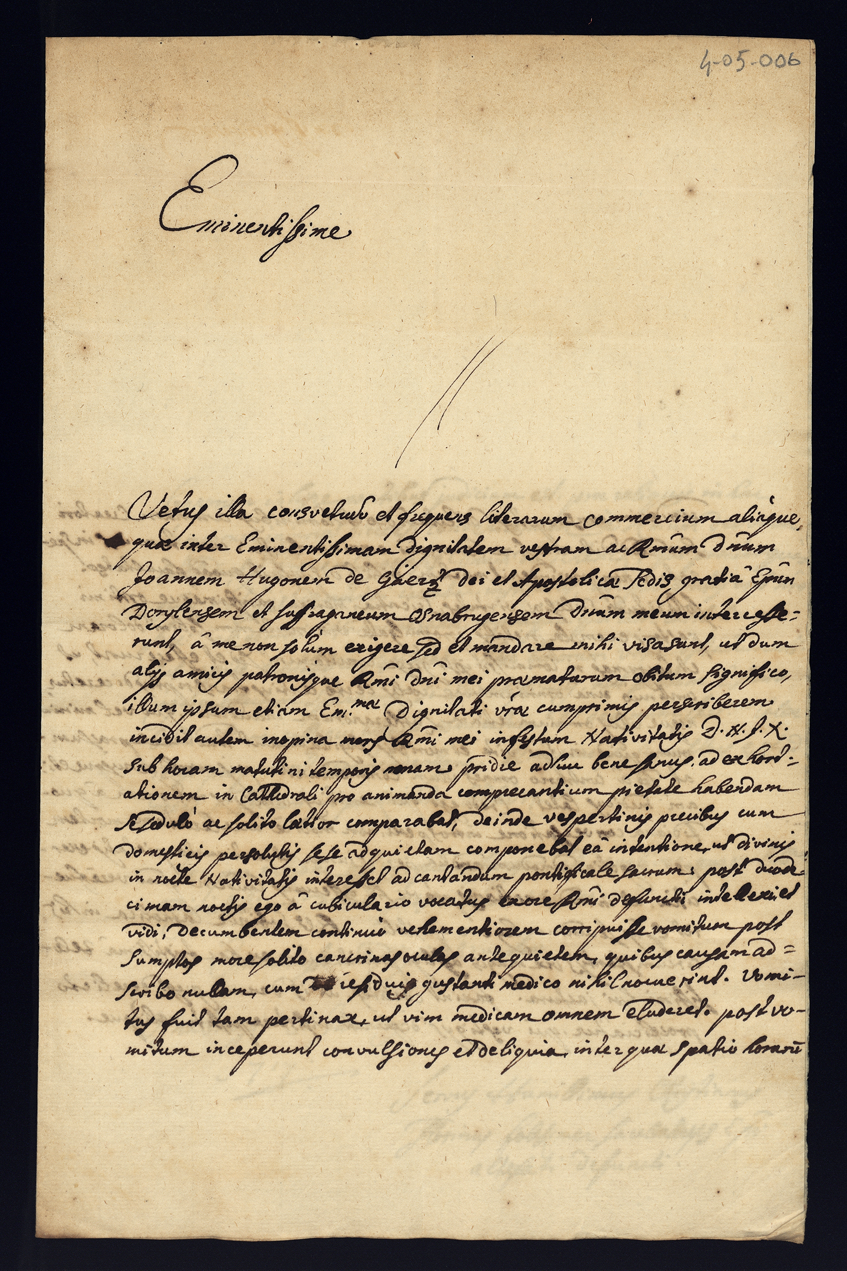 4-05-006
Eminentissime
Vetus illa consvetudo et frequens literarum commercium aliaque,
quæ inter Eminentissimam dignitatem vestram ac Rmum Dnum
Joannem Hugonem de Dei et Apostolicæ Sedis gratiâ Epum
Dorylensem et suffraganeum Osnabrugensem Dnum meum intercesse=
runt, â me non solum exigere sed et mandare mihi visa sunt, ut dum
alijs amicis patronisque Rmi Dni mei præmaturum obitum significo,
illum ipsum etiam Em.mæ Dignitati vræ cumprimis perscriberem
incidit autem inopina mors Rmi mei in festum Nativitatis D. N. J. X.
sub horam matutini temporis nonam: pridie adhuc bene sanus, ad exhort=
ationem in Cathedrali pro animanda comprecantium pietate habendam
se sedulo ac solito lætior comparabat, deinde vespertinis precibus cum
domesticis persolutis sese ad quietam componebat eâ intentione, ut divinis
in nocte Nativitatis interesset ad cantandum pontificale sacrum: post duode
cimam noctis ego â cubiculario vocatus ex ore Rmi defuncti intellexi et
vidi, decumbentem continuò vehementiorem corripuisse vomitum post
sumptos more solito cancrinos oculos ante quietem, quibus causam ad=
scribo nullam, cum residuis gustanti medico nihil nocuerint. Vomi-
tus fuit tam pertinax, ut vim medicam omnem eluderet. post vo-
mitum inceperunt convulsiones et deliquia, inter quæ spatio horarū